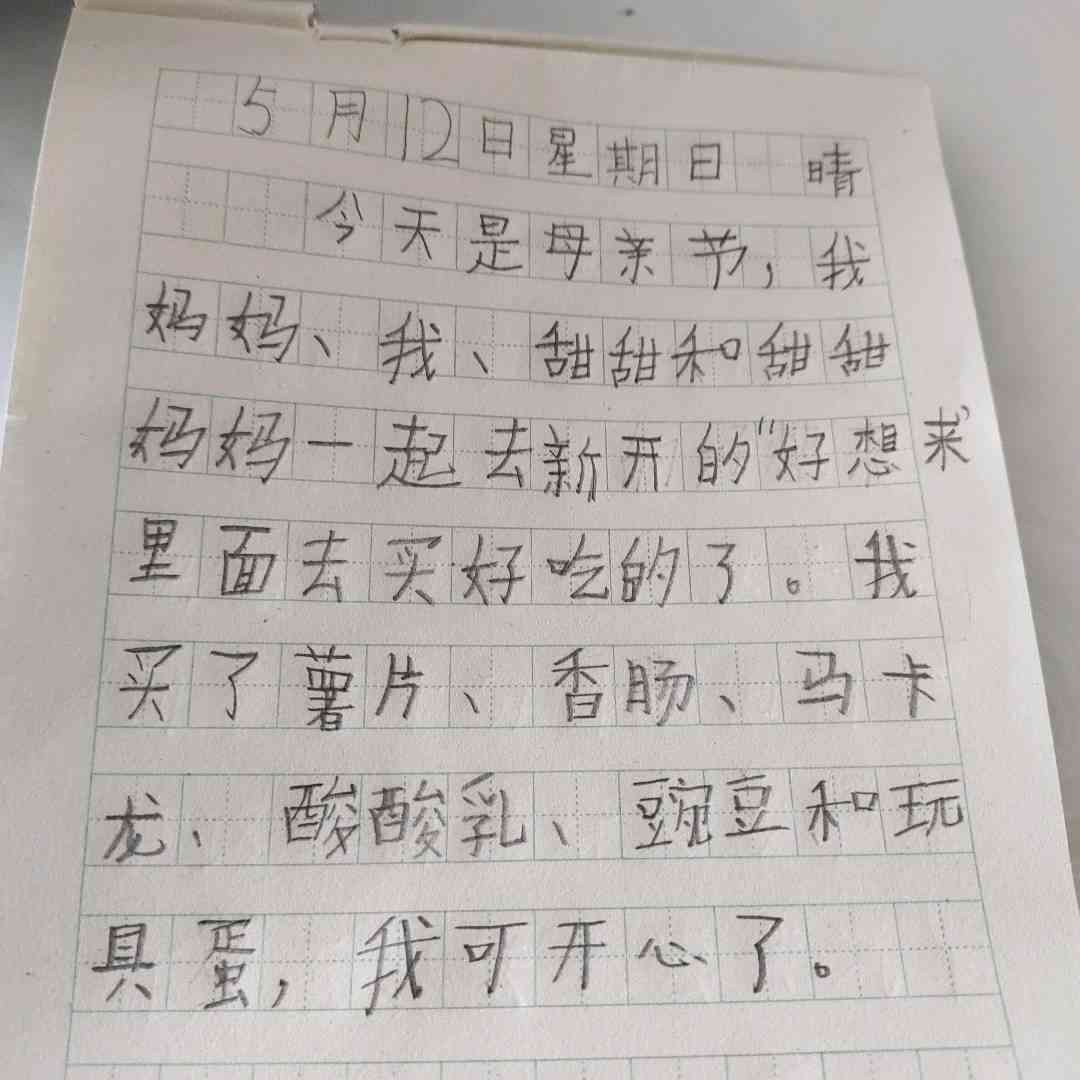 5月12日星期日 晴
今天是母亲节,我
妈妈、我、甜甜和甜甜
妈妈一起去新开的“好想来”
里面去买好吃的了。我
买了薯片、香肠、马卡
龙、酸酸乳、豌豆和玩
具蛋,我可开心了。